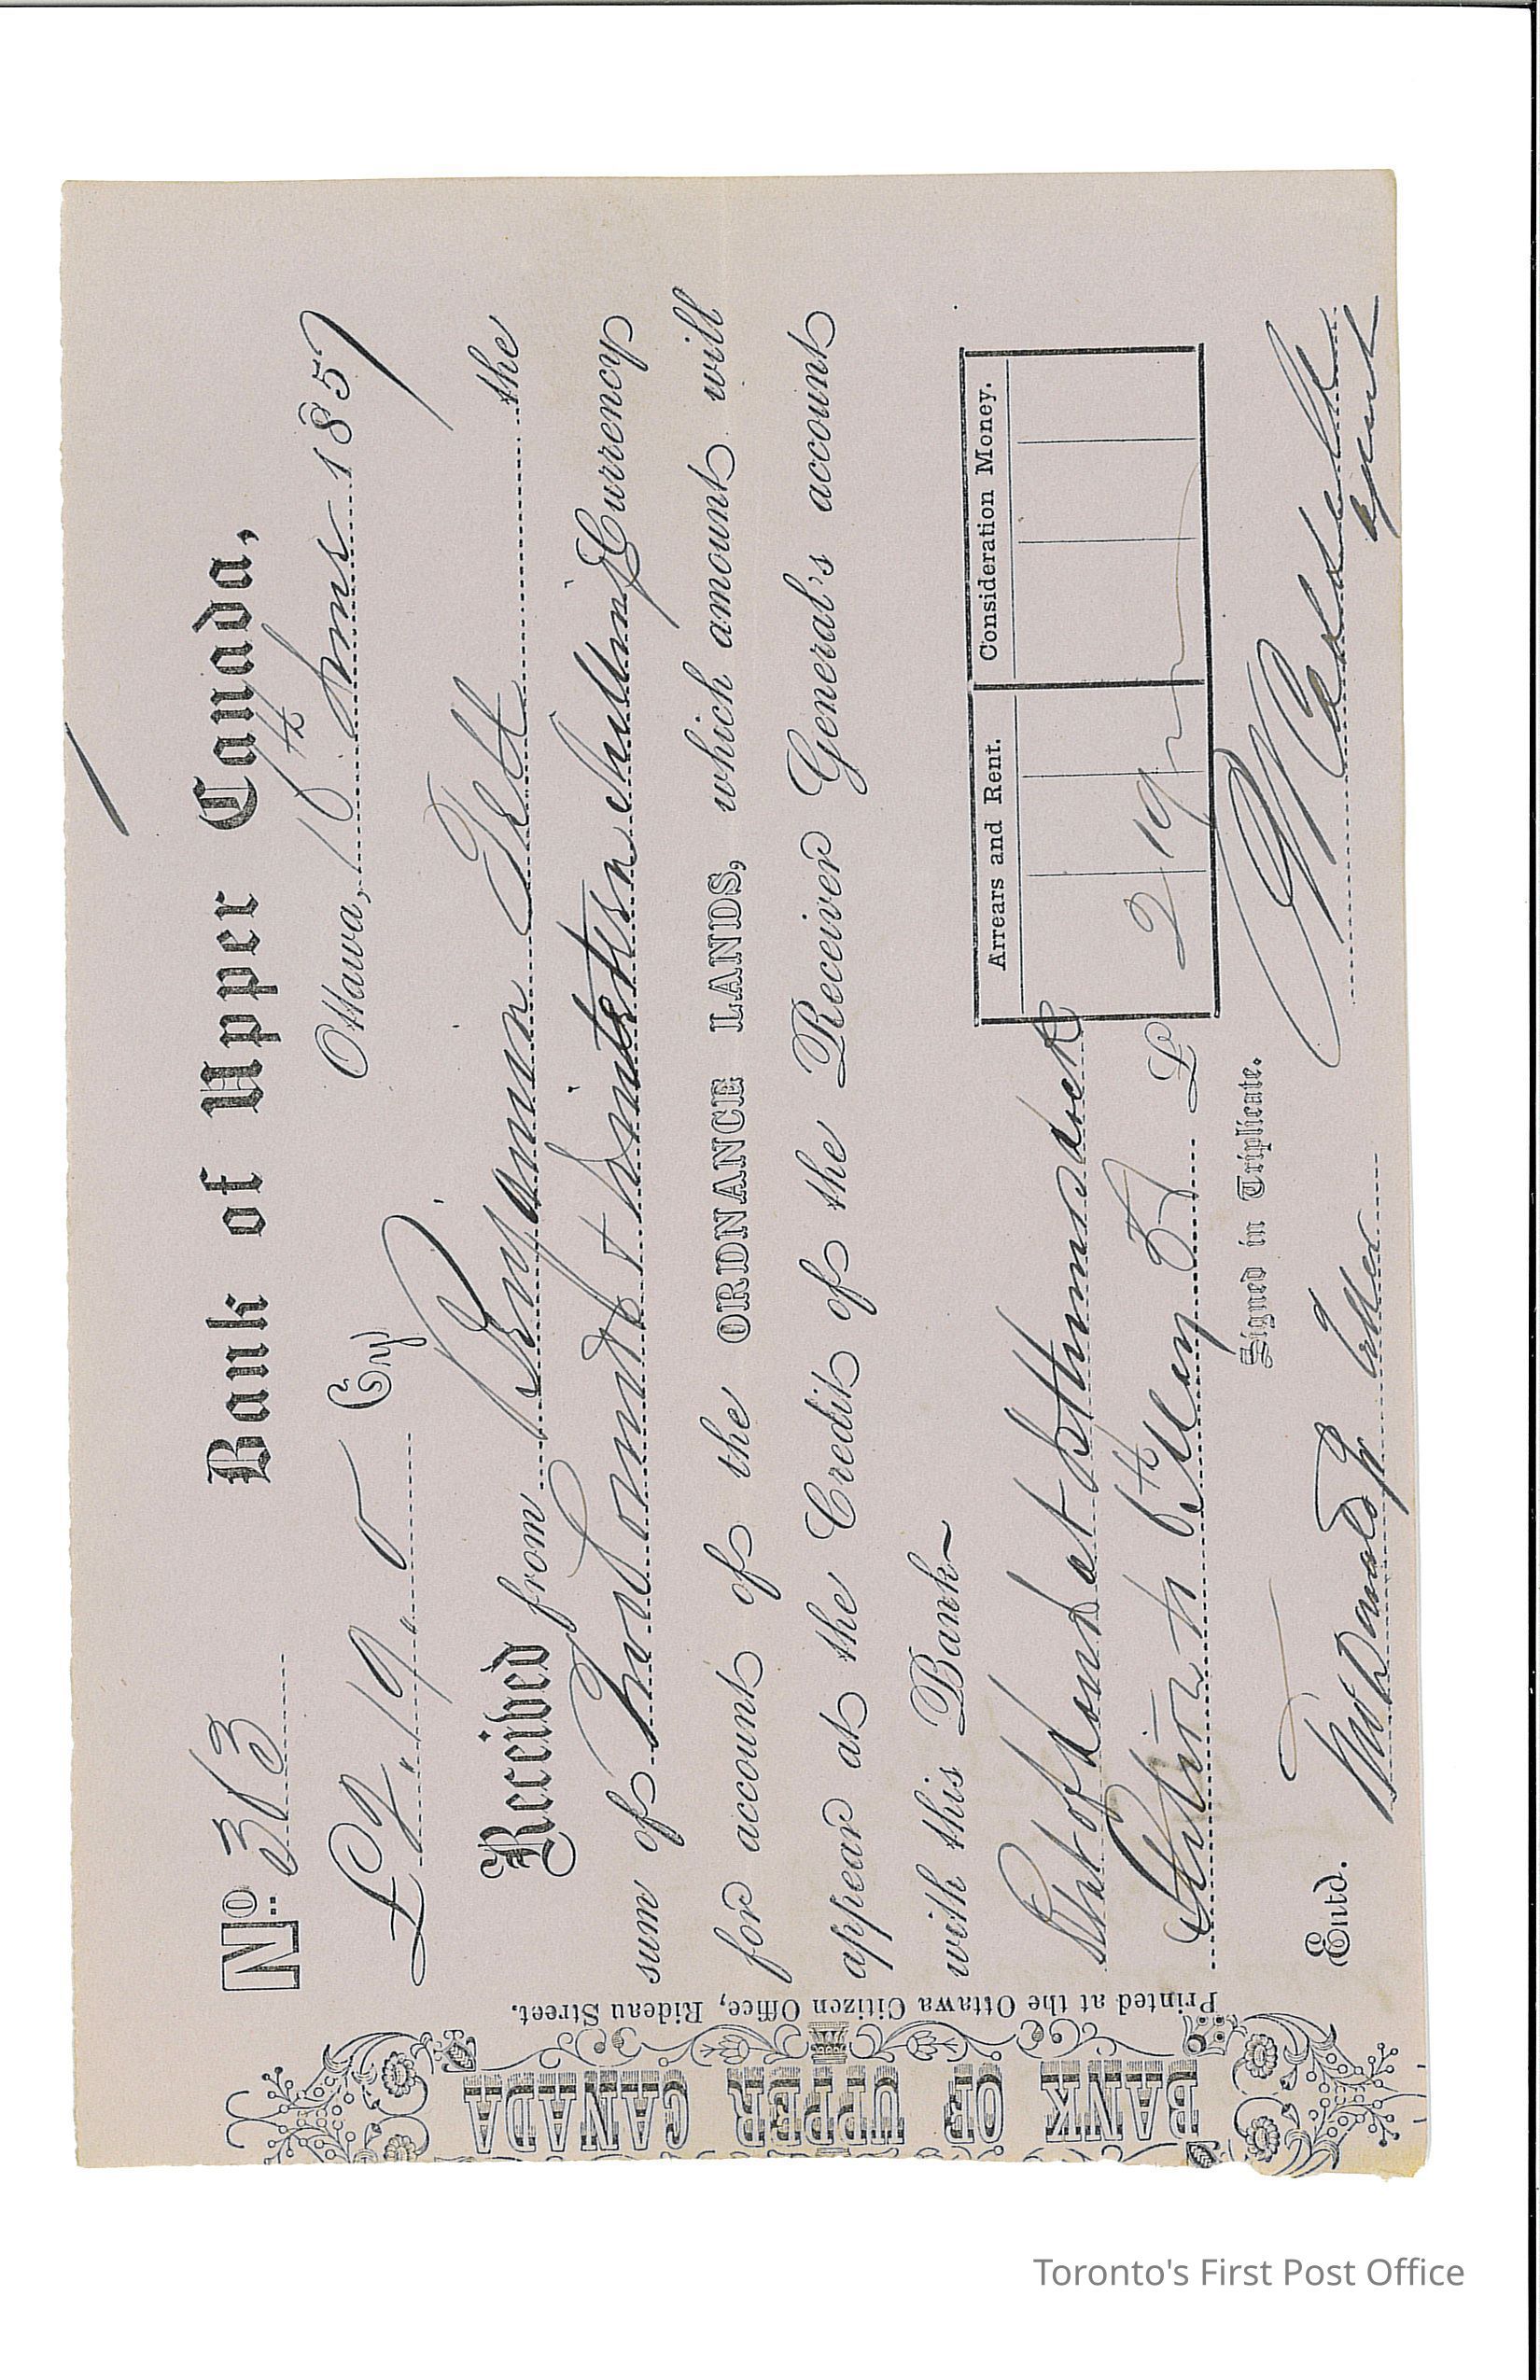 BANK OF UPPER CANADA
Printed at the Ottawa Citizen Office, Rideau Street.
No. 313
Bank of Upper Canada,
£2 " 19 " Cy
Ottawa, 16th June 1857
Received from Benjamin Tett the
sum of Two Pounds & Nineteen Shillings Currency
for account of the ORDNANCE LANDS, which amount will
appear at the Credit of the Receiver General's account
with this Bank~
Rent of Land at Isthmus Lock
Station to 6th May 57 £
Arrears and Rent. Consideration Money.
2 19
Signed in Triplicate.
Entd. Teller
Agent
Toronto's First Post Office